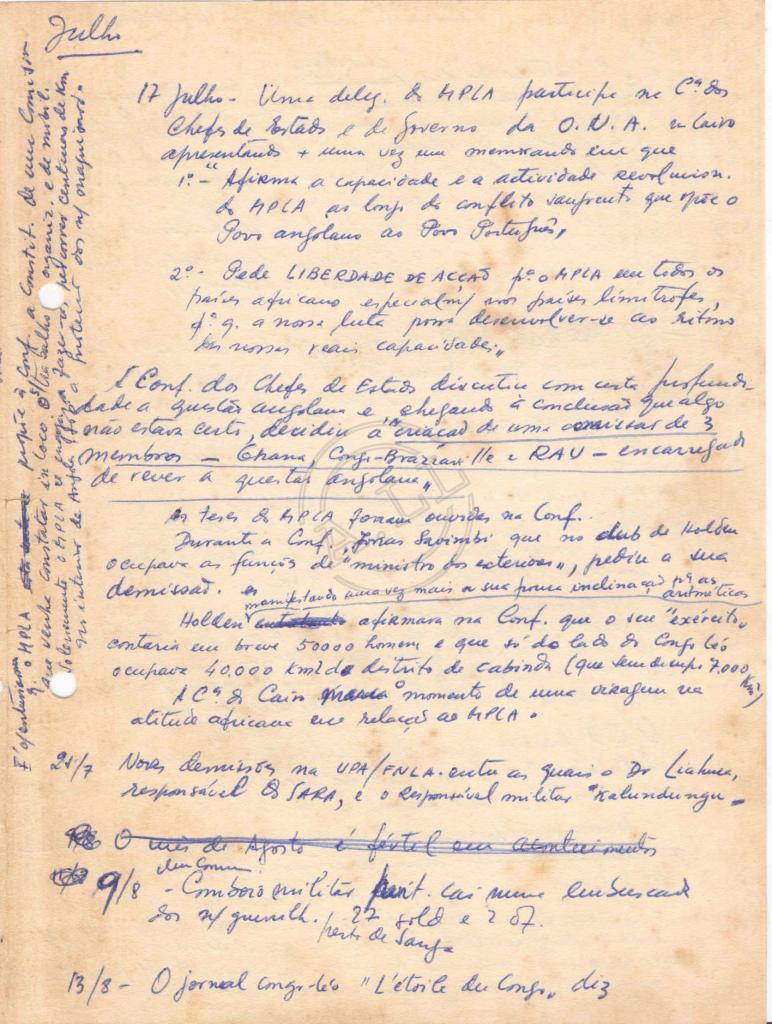 Julho
17 Julho - Uma deleg. do MPLA participa na Cª dos
Chefes de Estado e de Governo da O.U.A. no Cairo
apresentando + uma vez um memorando em que
1º - "Afirma a capacidade e a actividade revolucion.
do MPLA ao longo do conflito sangrento que opõe o
Povo angolano ao Povo Português"
2º - Pede LIBERDADE DE ACÇÃO pª o MPLA em todos os
países africano especialm/ nos países limítrofes,
pª q. a nossa luta possa desenvolver-se ao ritmo
das nossas reais capacidades"
A Conf. dos Chefes de Estado discutiu com certa profundi
dade a questão angolana e, chegando à conclusão que algo
não estava certo, decidiu a "criação de uma comissão de 3
membros - Ghana, Congo-Brazzaville e RAU - encarregada
de rever a questão angolana"
As teses do MPLA foram ouvidas na Conf.
Durante a Conf. Jonas Savimbi que no club de Holden
ocupava as funções de "ministro dos exteriores", pediu a sua
demissão.
manifestando uma vez mais a sua pouca inclinação pª as aritméticas
Holden afirmava na Conf. que o seu "exército"
contaria em breve 50000 homens e que só do lado do Congo Léo
ocupava 40.000 Km2 do distrito de Cabinda (que tem 7.000 Km²)
A Cª do Cairo marca o momento de uma viragem na
atitude africana em relação ao MPLA.
21/7 Novas demissões na UPA/FNLA. entre as quais o Dr Liahuca,
responsável do SARA, e o responsável militar Kalundungu -
O mês de Agosto é fértil em acontecimentos
9/8 - Comboio militar cai numa emboscada
dos n/ guerrilh. 27 sold e 2 of.
perto de Sanga
13/8 - O jornal Congo-Léo "L'étoile du Congo" diz
q. o MPLA propõe à Conf. a constit. de uma Comissão
que venha constatar in loco o trabalho organiz. e de mobil.
o MPLA fazer-os percorrer centenas de Km
no interior de Angola sob a protecção dos n/ maquisards.